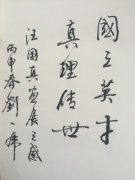 國之英才
真理傳世
汪國真書展之感
丙申春劉一偉